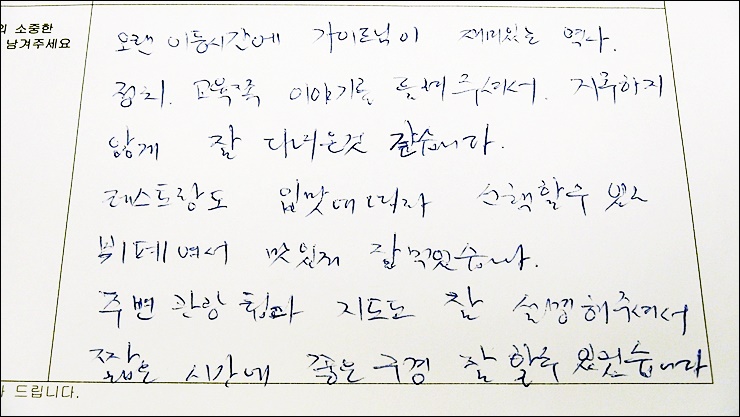 의 소중한
남겨주세요
오랜 이동시간에 가이드님이 재미있는 역사.
정치. 교육쪽 이야기를 들려주셔서. 지루하지
않게 잘 다녀온것 같습니다.
레스토랑도 입맛에 따라 선택할수 있는
뷔페여서 맛있게 잘먹었습니다.
주변 관광 팁과 지도도 잘 설명해주셔서
짧은 시간에 좋은구경 잘 할수 있었습니다
드립니다.